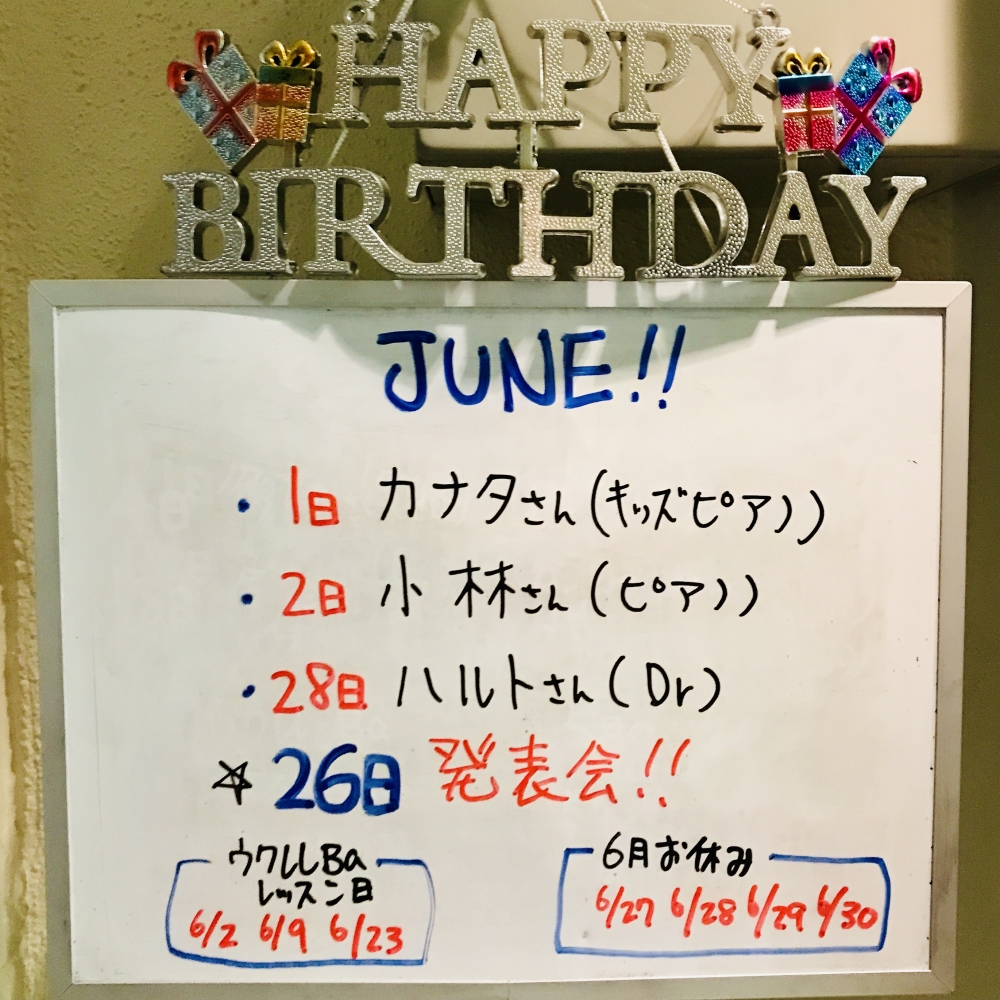 HAPPY
BIRTHDAY
JUNE!!
・1日 カナタさん(キッズピアノ)
・2日 小林さん(ピアノ)
・28日 ハルトさん(Dr)
☆26日 発表会!!
ウクレレBa
レッスン日
6/2 6/9 6/23
6月お休み
6/27 6/28 6/29 6/30